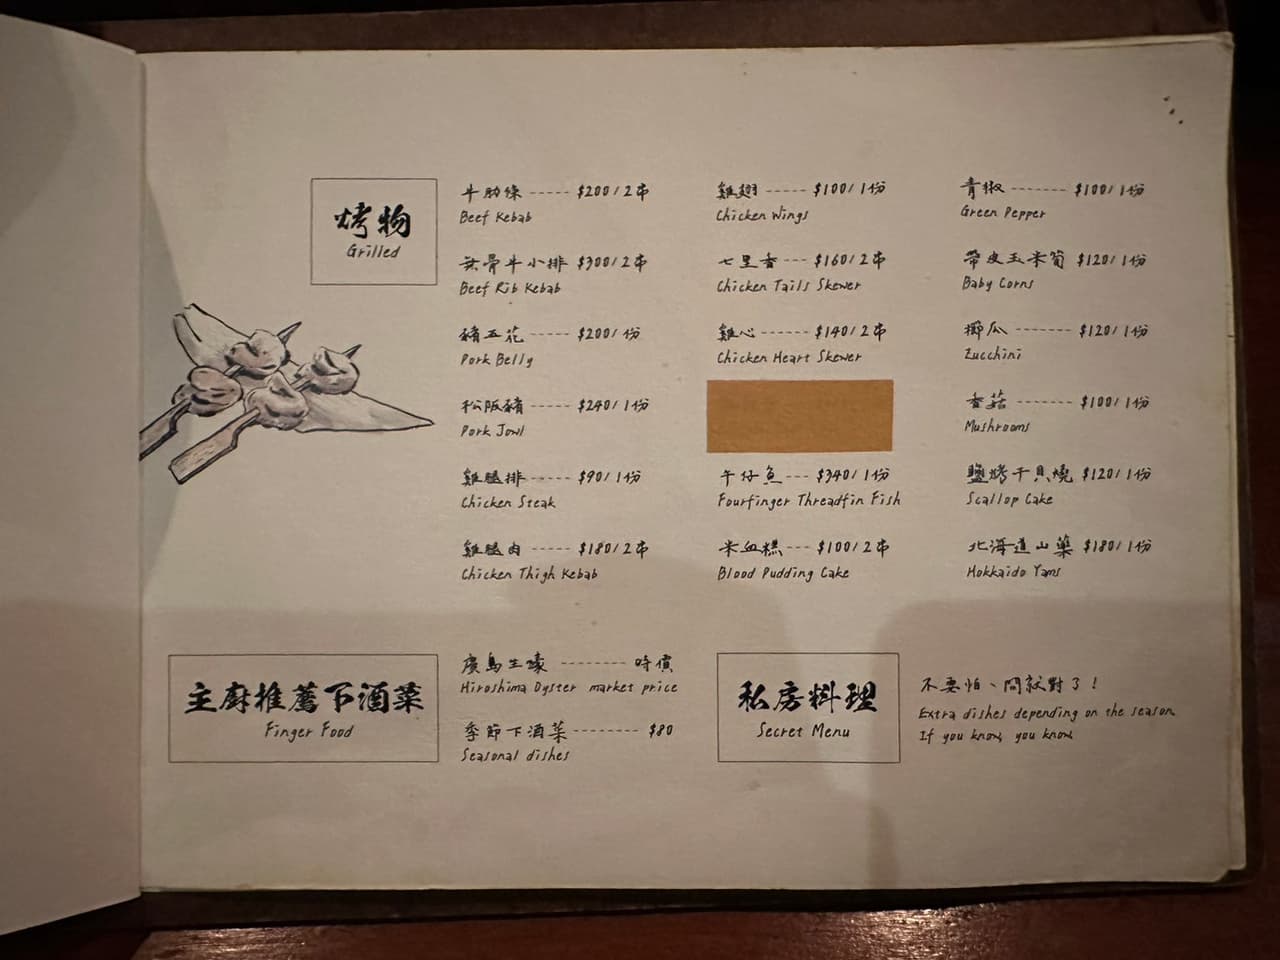 烤物
Grilled
牛肋條 ----- $200/2串
Beef Kebab
無骨牛小排 $300/2串
Beef Rib Kebab
豬五花 ----- $200/份
Pork Belly
松阪豬 ----- $240/1份
Pork Jowl
雞腿排 ----- $90/1份
Chicken Steak
雞腿肉 ----- $180/2串
Chicken Thigh Kebab
雞翅 ----- $100/1份
Chicken Wings
七里香 --- $160/2串
Chicken Tails Skewer
雞心 ------ $140/2串
Chicken Heart Skewer
午仔魚 --- $340/1份
Fourfinger Threadfin Fish
米血糕 --- $100/2串
Blood Pudding Cake
青椒 ------- $100/1份
Green Pepper
帶皮玉米筍 $120/1份
Baby Corns
櫛瓜 ------- $120/1份
Zucchini
香菇 ------- $100/1份
Mushrooms
鹽烤干貝燒 $120/1份
Scallop Cake
北海道山藥 $180/1份
Hokkaido Yams
主廚推薦下酒菜
Finger Food
廣島生蠔 -------- 時價
Hiroshima Oyster market price
季節下酒菜 -------- $80
Seasonal dishes
私房料理
Secret Menu
不要怕、問就對了!
Extra dishes depending on the season
If you know, you know